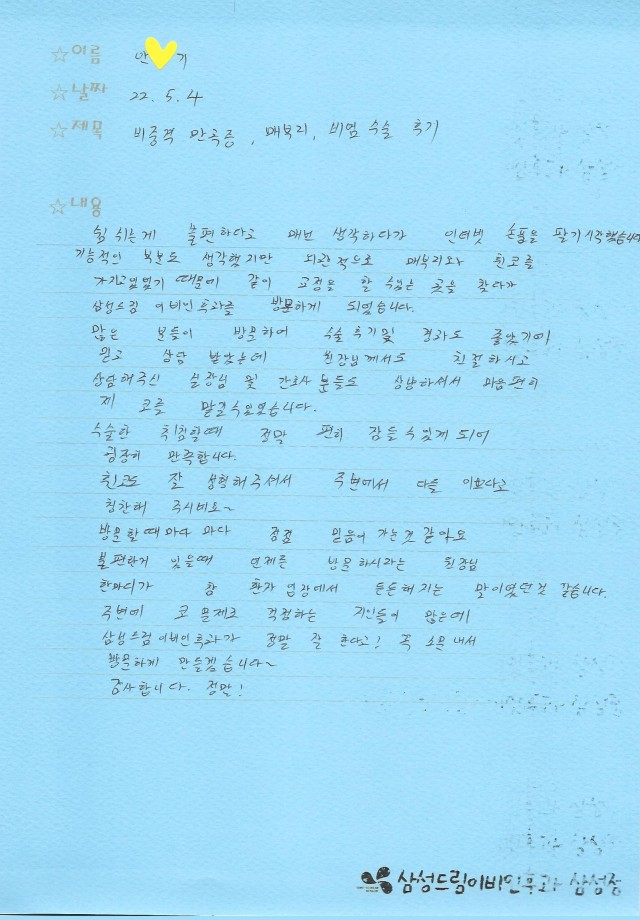 ☆이름 안 기
☆날짜 22. 5. 4
☆제목 비중격 만곡증, 매부리, 비염 수술 후기
☆내용
숨 쉬는게 불편하다고 매번 생각하다가 인터넷 손품을 팔기 시작했습니다
기능적인 부분도 생각했지만 외관적으로 매부리와 휜코를
가지고있었기 때문에 같이 교정을 할 수있는 곳을 찾다가
삼성드림 이비인후과를 방문하게 되었습니다.
많은 분들이 방문하여 수술 후기및 결과도 좋았기에
믿고 상담 받았는데 원장님께서도 친절하시고
상담해주신 실장님 및 간호사 분들도 상냥하셔서 마음편히
제 코를 맡길수있었습니다.
수술한 취침할때 정말 편히 잠들수있게 되어
굉장히 만족합니다.
휜코도 잘 성형해주셔서 주변에서 다들 이쁘다고
칭찬해 주시네요~
방문할때마다 마다 점점 믿음이 가는것 같아요
불편한게 있을때 언제든 방문하시라는 원장님
한마디가 참 환자 입장에서 든든해지는 말이였던것 같습니다.
주변에 코 문제로 걱정하는 지인들이 많은데
삼성드림이비인후과가 정말 잘 한다고! 꼭 소문내서
방문하게 만들겠습니다~
감사합니다. 정말!
삼성드림이비인후과 삼성점